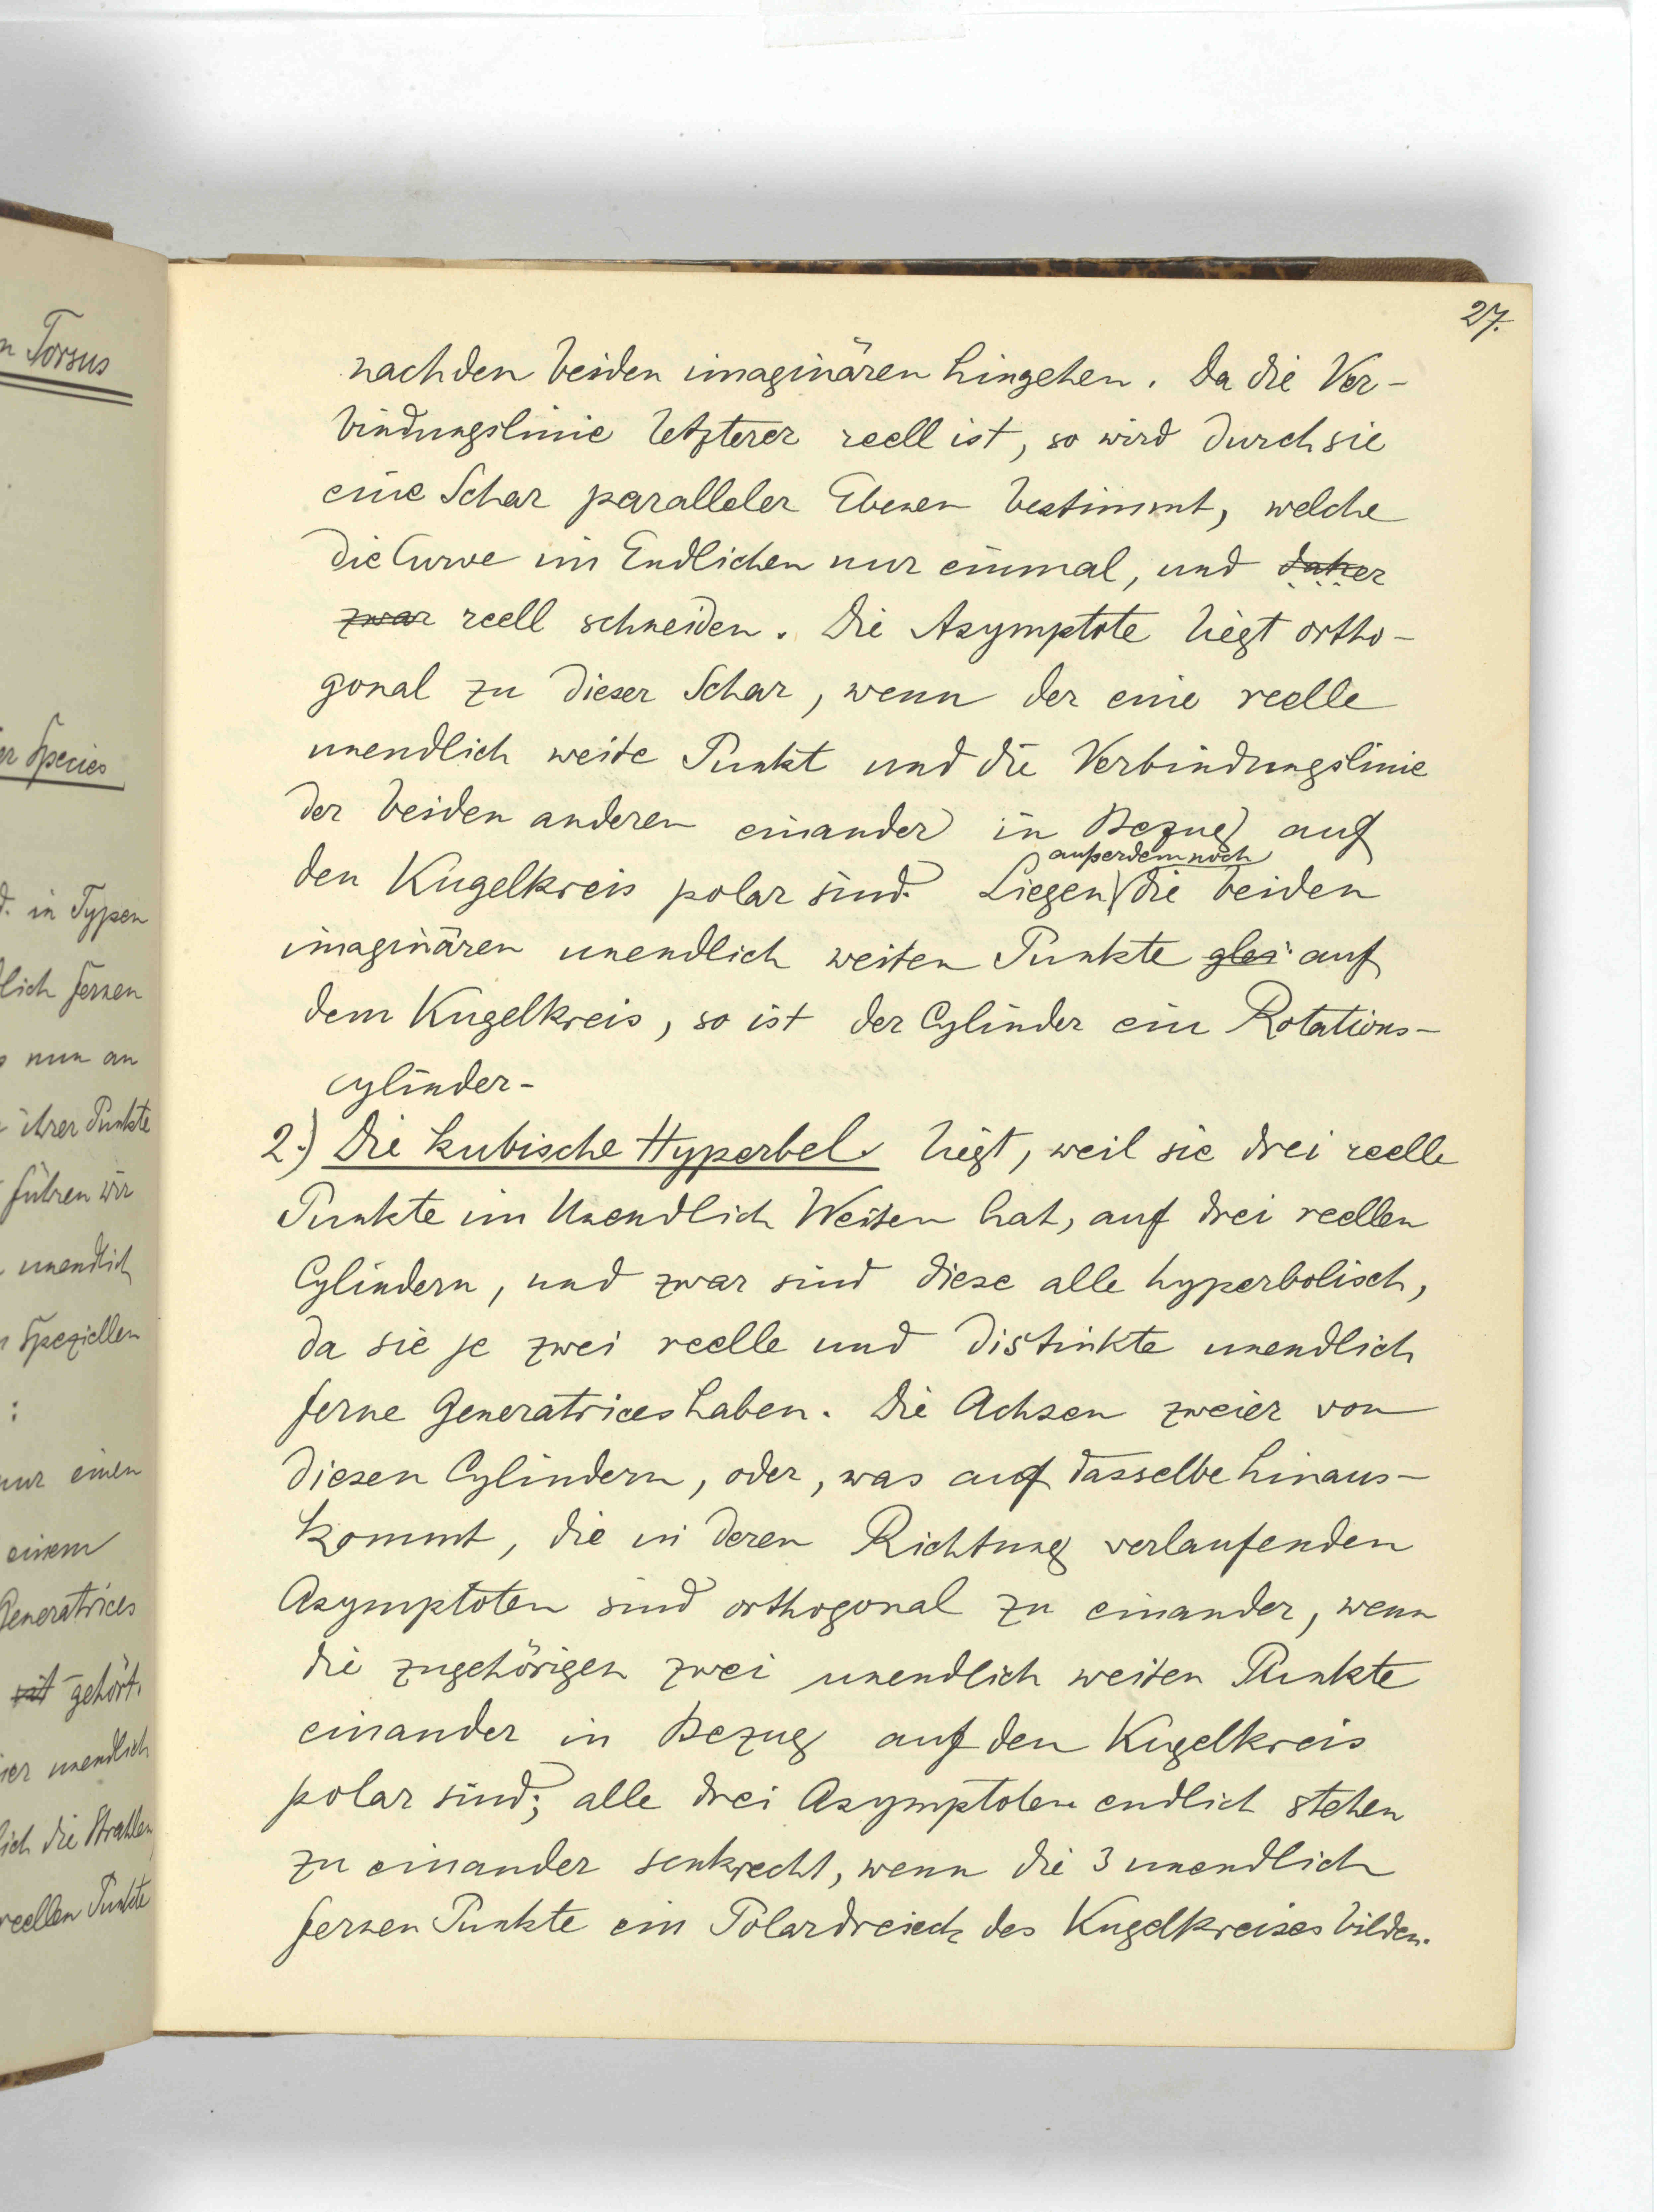 n Torsus
er Species
d. in Typen
lich fernen
s nun an
ihrer Punkte
führen wir
unendlich
n speziellen
:
nur einen
einem
Generatrices
gehört.
ier unendlich
lich die Strahlen,
reellen Punkte
27.
nach den beiden imaginären hingehen. Da die Ver-
bindungslinie letzterer reell ist, so wird durch sie
eine Schar paralleler Ebenen bestimmt, welche
die Curve im Endlichen nur einmal, und daher
zwar reell schneiden. Die Asymptote liegt ortho-
gonal zu dieser Schar, wenn der eine reelle
unendlich weite Punkt und die Verbindungslinie
der beiden anderen einander in Bezug auf
außerdem noch
den Kugelkreis polar sind. Liegen die beiden
imaginären unendlich weiten Punkte glei auf
dem Kugelkreis, so ist der Cylinder ein Rotations-
cylinder-
2.) Die kubische Hyperbel. liegt, weil sie drei reelle
Punkte im Unendlich Weiten hat, auf drei reellen
Cylindern, und zwar sind diese alle hyperbolisch,
da sie je zwei reelle und distinkte unendlich
ferne Generatrices haben. Die Achsen zweier von
diesen Cylindern, oder, was auf dasselbe hinaus-
kommt, die in deren Richtung verlaufenden
Asymptoten sind orthogonal zu einander, wenn
die zugehörigen zwei unendlich weiten Punkte
einander in Bezug auf den Kugelkreis
polar sind; alle drei Asymptoten endlich stehen
zu einander senkrecht, wenn die 3 unendlich
fernen Punkte ein Polardreieck des Kugelkreises bilden.